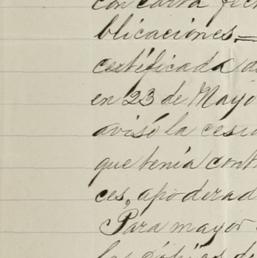 con carta
blicaciones=
certificada de
en 23 de Mayo
avisó la cesi
que tenía cont
ces, apoderad
Para mayor